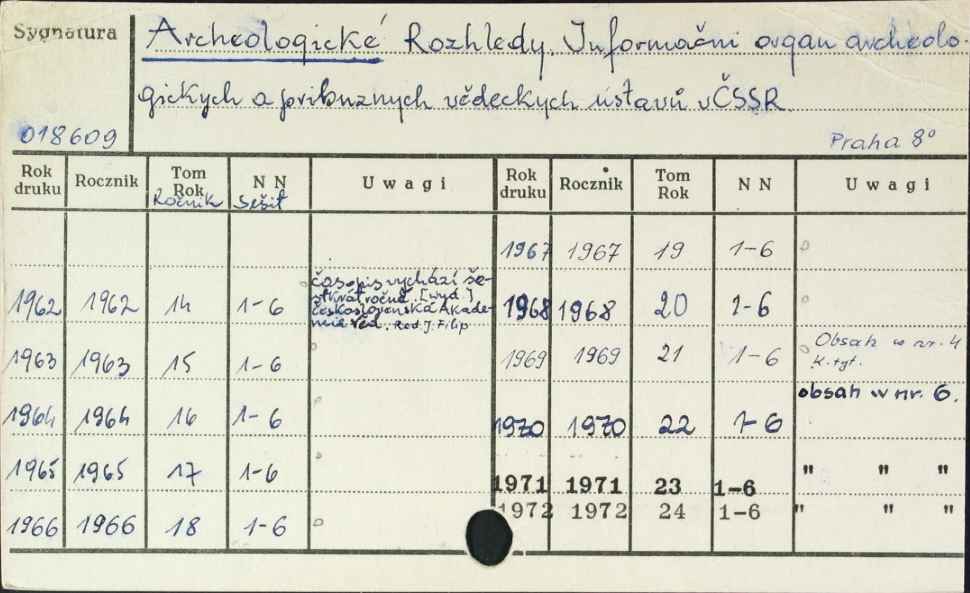 Sygnatura
Archeologické Rozhledy. Informačni organ archeolo-
gickych a pribuznych vědeckych ústavů v ČSSR
018609
Praha 8°
Rok druku Rocznik Tom Rok N N Uwagi Rok druku Rocznik Tom Rok N N Uwagi
Ročnik Sešit
1967 1967 19 1-6
1962 1962 14 1-6 časopis vychází še-
stkrát ročně. [wyd.]
československá Akade-
mie věd. Red. J. Filip
1968 1968 20 1-6
1963 1963 15 1-6 1969 1969 21 1-6 Obsah w nr. 4
k. tyt.
1964 1964 16 1-6 1970 1970 22 1-6 obsah w nr. 6.
1965 1965 17 1-6 1971 1971 23 1-6 " " "
1966 1966 18 1-6 1972 1972 24 1-6 " " "